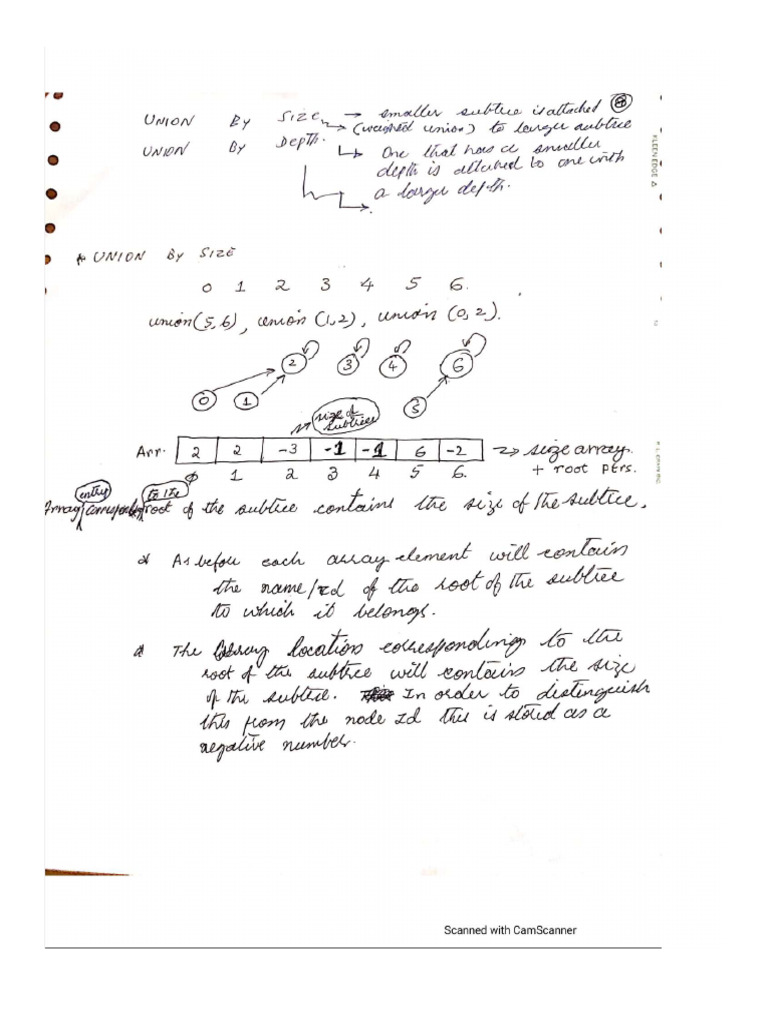 UNION BY SIZE → smaller subtree is attached
(weighted union) to larger subtree
UNION BY Depth. → One that has a smaller
depth is attached to one with
a larger depth.
KLEEN EDGE
* UNION BY SIZE
0 1 2 3 4 5 6.
union(5,6), union (1,2), union (0,2).
2 3 4 6
0 1 5
size of
subtree
Arr. 2 2 -3 -1 -1 6 -2 → size array
0 1 2 3 4 5 6. + root ptrs.
entry to the
Array root of the subtree contains the size of the subtree.
As before each array element will contain
the name/id of the root of the subtree
to which it belongs.
The array location corresponding to the
root of the subtree will contains the size
of the subtree. In order to distinguish
this from the node Id this is stored as a
negative number.
Scanned with CamScanner